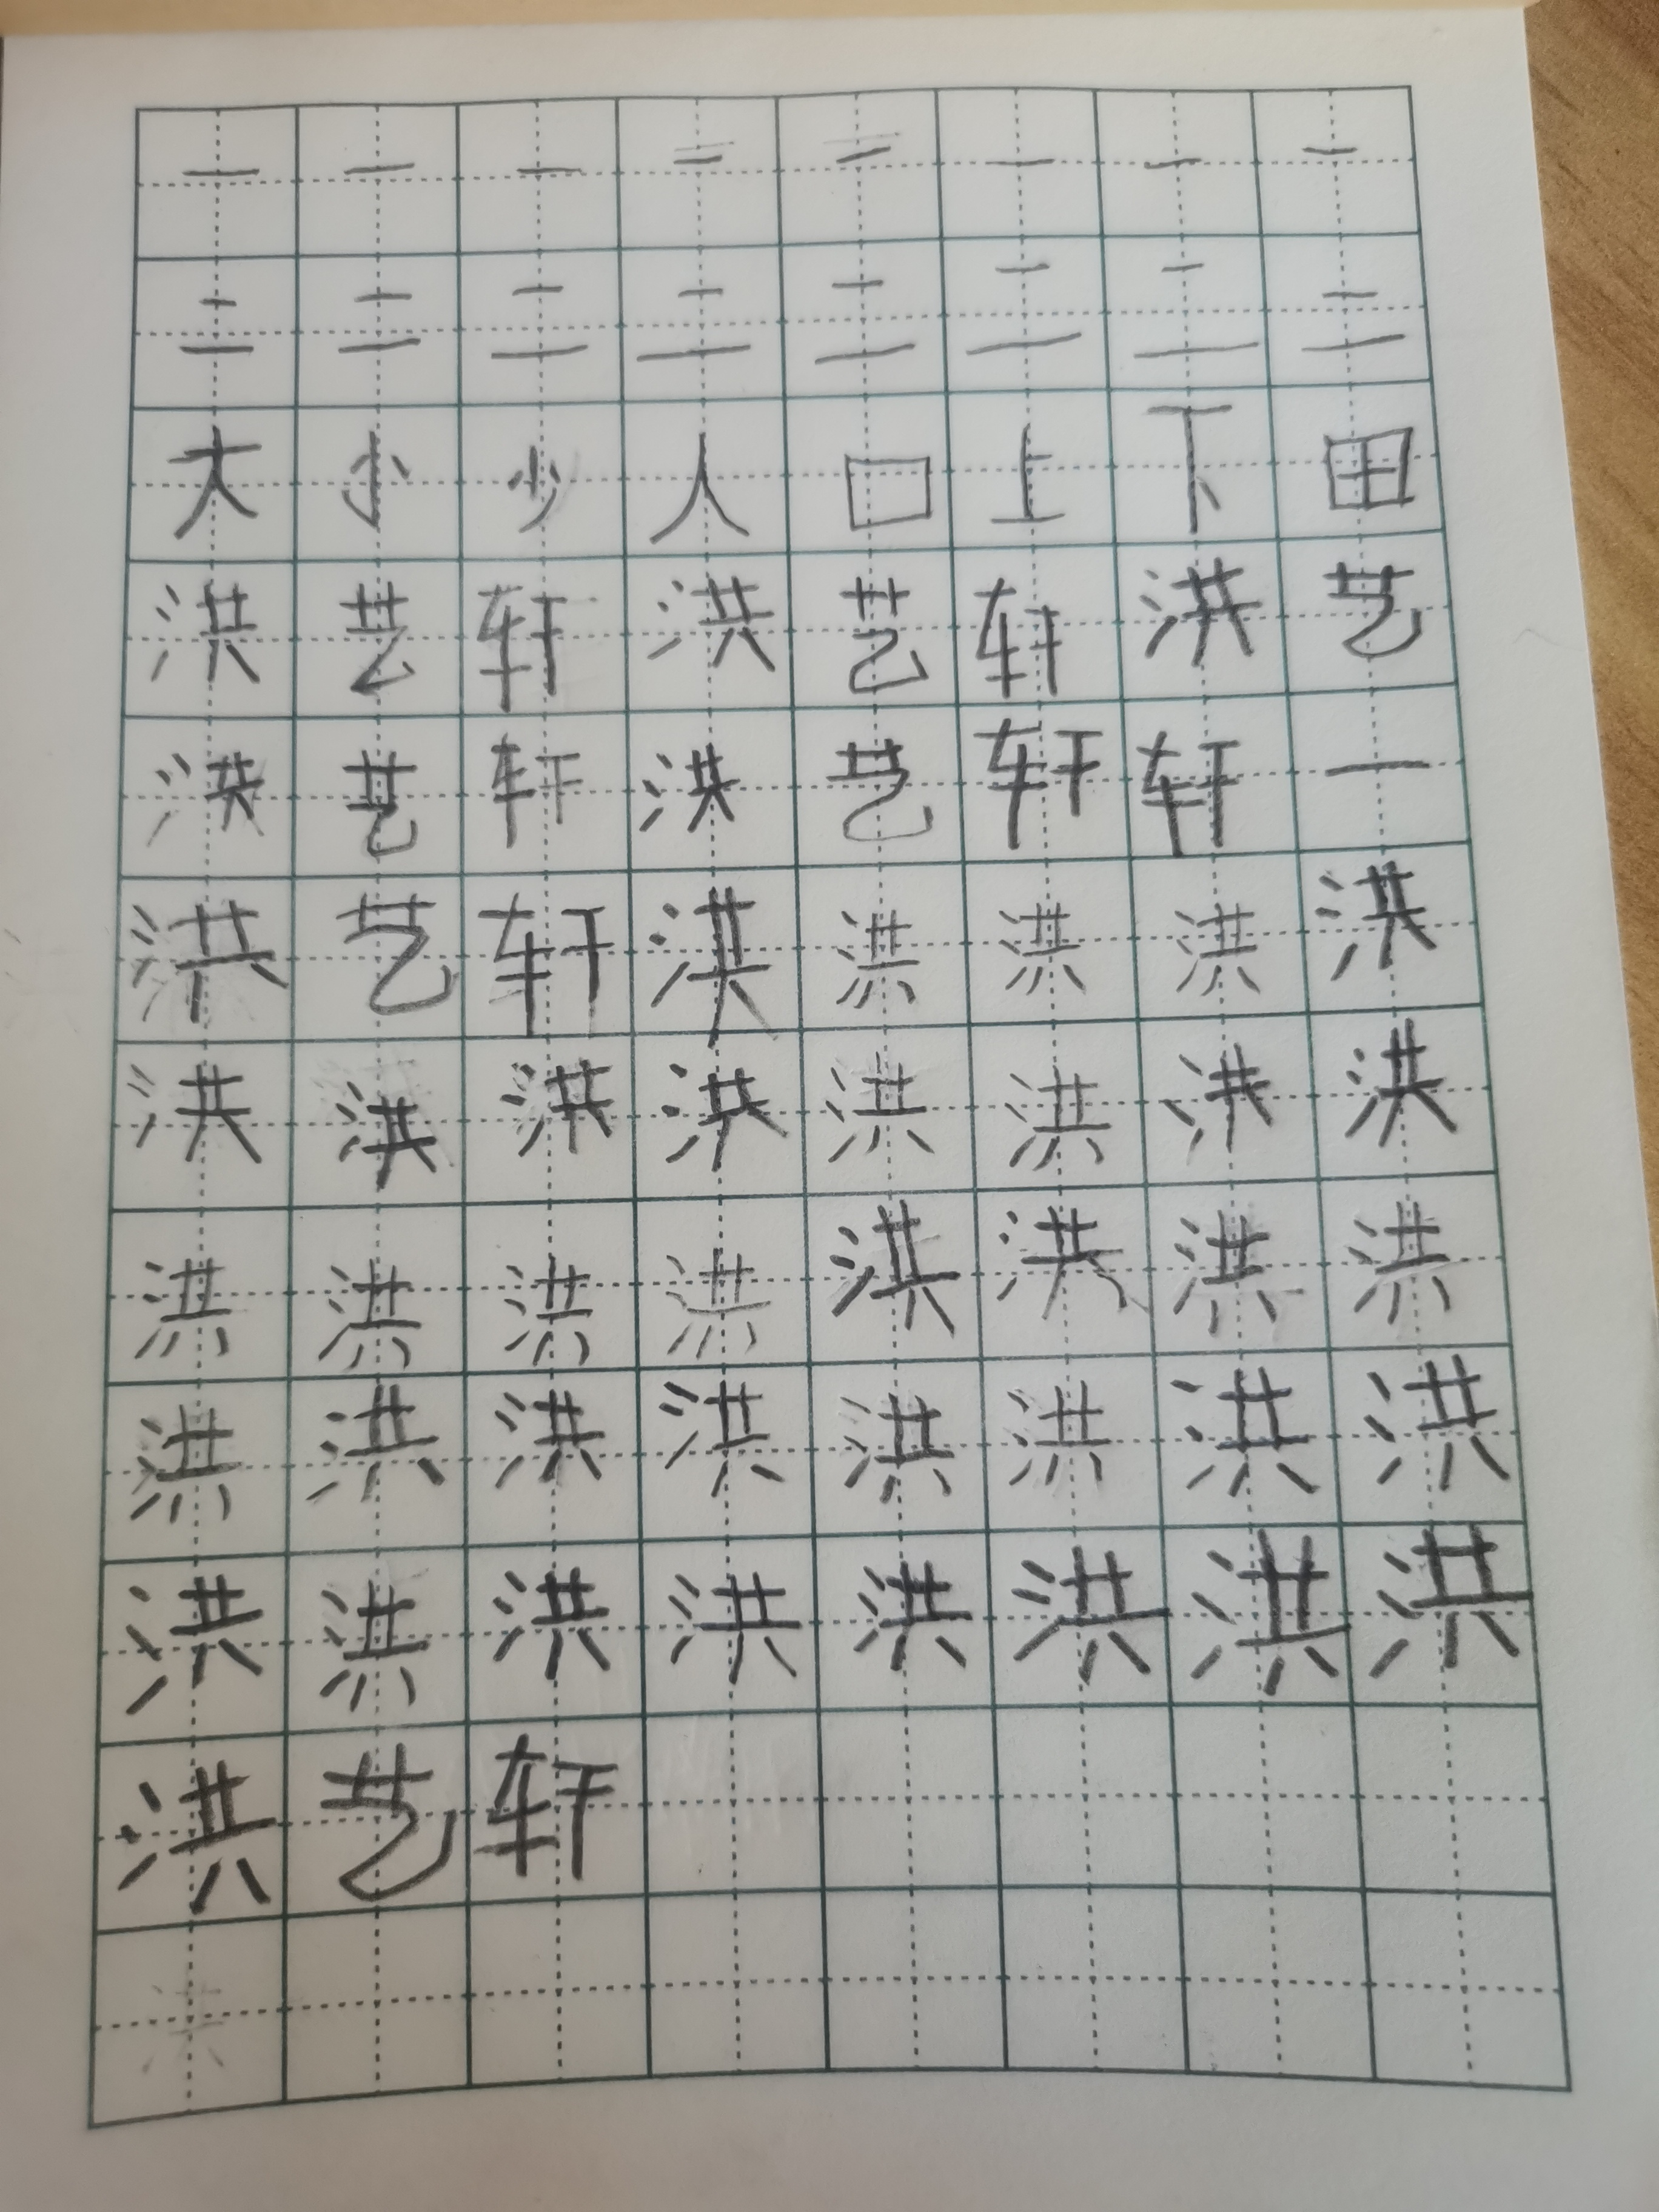 一 一 一 一 一 一 一 一
二 二 二 二 二 二 二 二
大 小 少 人 口 上 下 田
洪 艺 轩 洪 艺 轩 洪 艺
洪 艺 轩 洪 艺 轩 轩 一
洪 艺 轩 洪 洪 洪 洪 洪
洪 洪 洪 洪 洪 洪 洪 洪
洪 洪 洪 洪 洪 洪 洪 洪
洪 洪 洪 洪 洪 洪 洪 洪
洪 洪 洪 洪 洪 洪 洪 洪
洪 艺 轩